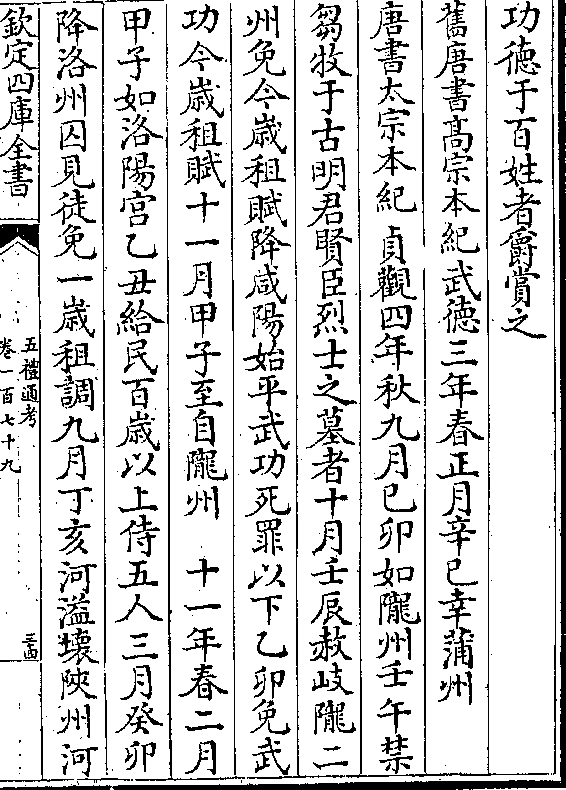 功徳于百姓者爵賞之
舊唐書髙宗本紀武徳三年春正月辛巳幸蒲州
唐書太宗本紀 貞觀四年秋九月己卯如隴州壬午禁
芻牧于古明君賢臣烈士之墓者十月壬辰赦岐隴二
州免今歳租賦降咸陽始平武功死罪以下乙卯免武
功今歳租賦十一月甲子至自隴州 十一年春二月
甲子如洛陽宮乙丑給民百歳以上侍五人三月癸卯
降洛州囚見徒免一歳租調九月丁亥河溢壊陜州河
欽定四庫全書
五禮通考
卷一百七十九